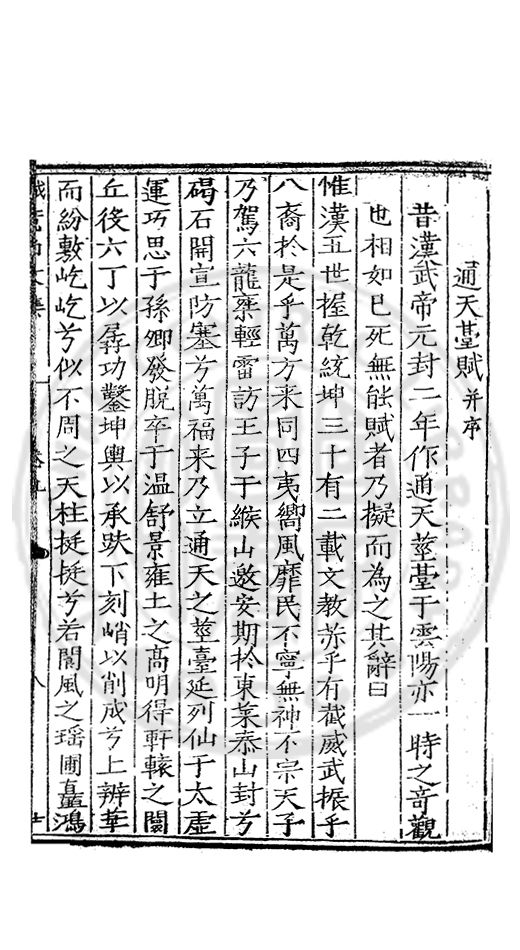 通天臺賦并序
昔漢武帝元封二年作通天莖臺于雲陽亦一時之奇觀
也相如巳死無能賦者乃擬而為之其辭曰
惟漢五世握乾統坤三十有二載文教荐乎有截威武振乎
八裔於是乎萬方來同四夷嚮風靡民不寧無神不宗天子
乃駕六龍乘輕雷訪王子于緱山邀安期於東萊泰山封兮
碣石開宣防塞兮萬福来乃立通天之莖臺延列仙于太虛
運巧思于孫卿發脫卒于温舒景雍土之高明得軒轅之圜
丘後六丁以孱功鑿坤輿以承趺下刻峭以削成兮上辨華
而紛敷屹屹兮似不周之天柱挺挺兮若閬風之瑶圃矗鴻